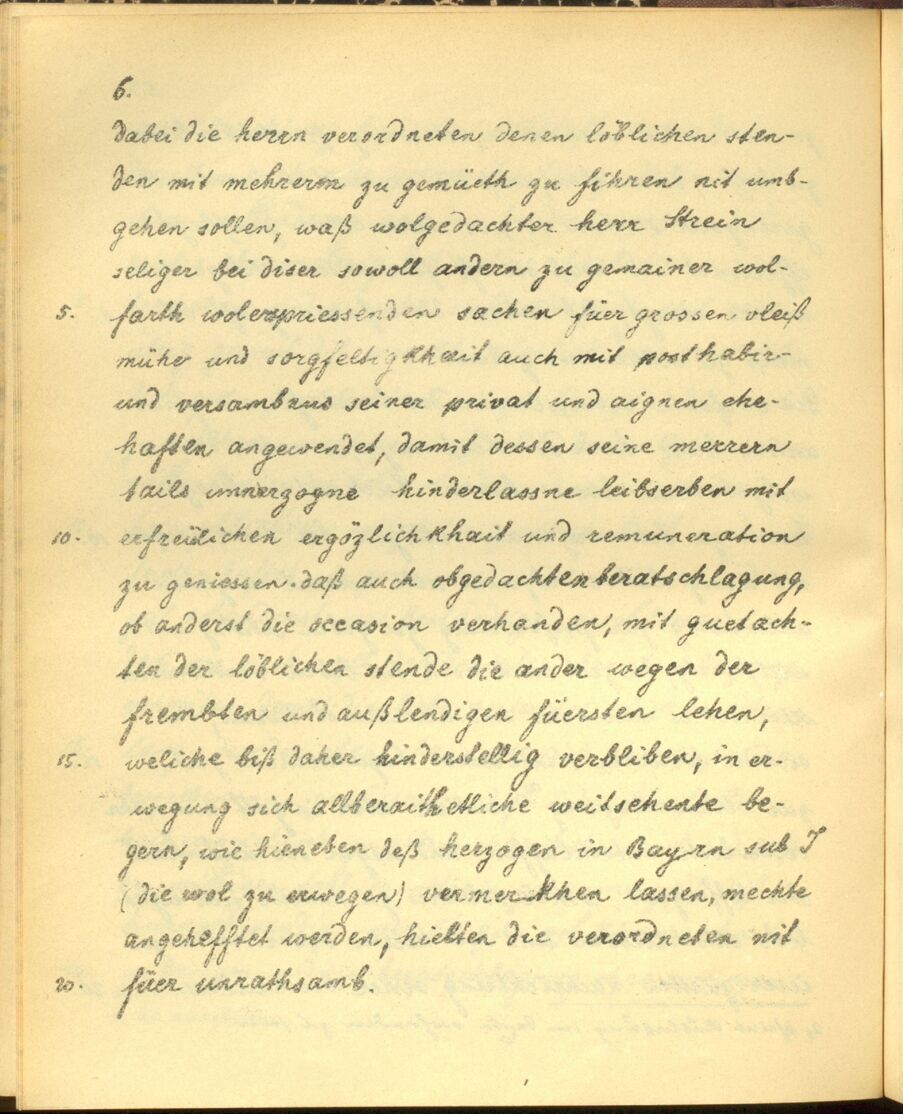 6.
dabei die herrn verordneten denen löblichen sten-
den mit mehrerm zu gemüeth zu fihren nit umb-
gehen sollen, waß wolgedachter herr Strein
seliger bei diser sowoll andern zu gemainer wol-
5. farth wolerspriessenden sachen füer grossen vleiß
mühe und sorgfeltigkhait auch mit posthabir-
und versambnus seiner privat und aignen ehe-
haften angewendet, damit dessen seine merrern
tails unnerzogne hinderlassne leibserben mit
10. erfreülichen ergözlichkhait und remuneration
zu geniessen. daß auch obgedachten beratschlagung,
ob anderst die occasion verhanden, mit guetach-
ten der löblichen stende die ander wegen der
frembten und außlendigen füersten lehen,
15. weliche biß daher hinderstellig verbliben, in er-
wegung sich allberaith etliche weitsehente be-
gern, wie hieneben deß herzogen in Bayrn sub J
(die wol zu erwegen) vermerkhen lassen, mechte
angehefftet werden, hielten die verordneten nit
20. füer unrathsamb.